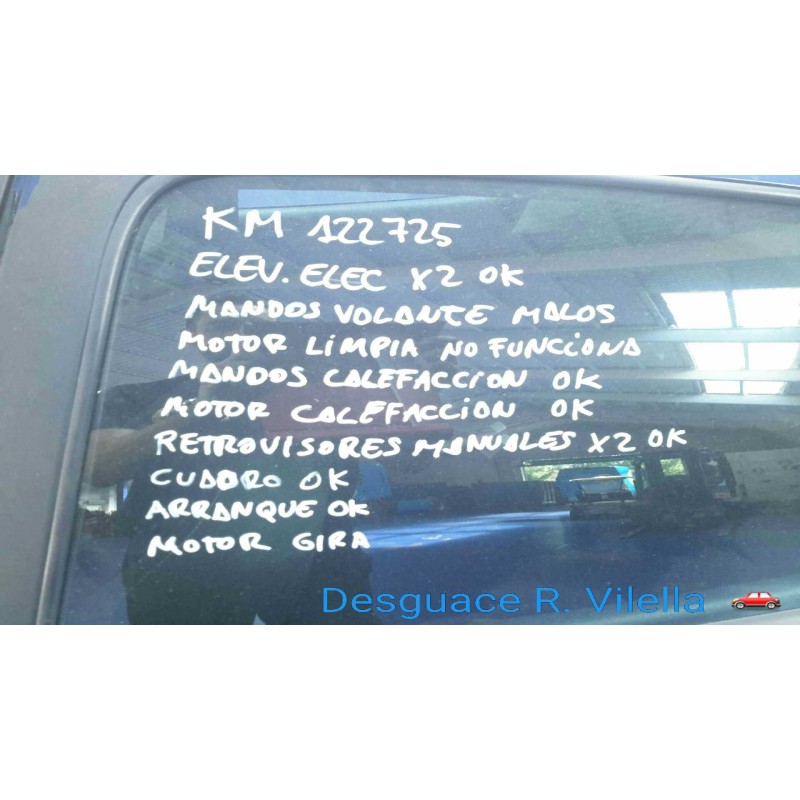 KM 122725
ELEV. ELEC X2 OK
MANDOS VOLANTE MALOS
MOTOR LIMPIA NO FUNCIONA
MANDOS CALEFACCION OK
MOTOR CALEFACCION OK
RETROVISORES MANUALES X2 OK
CUADRO OK
ARRANQUE OK
MOTOR GIRA
Desguace R. Vilella 🚗